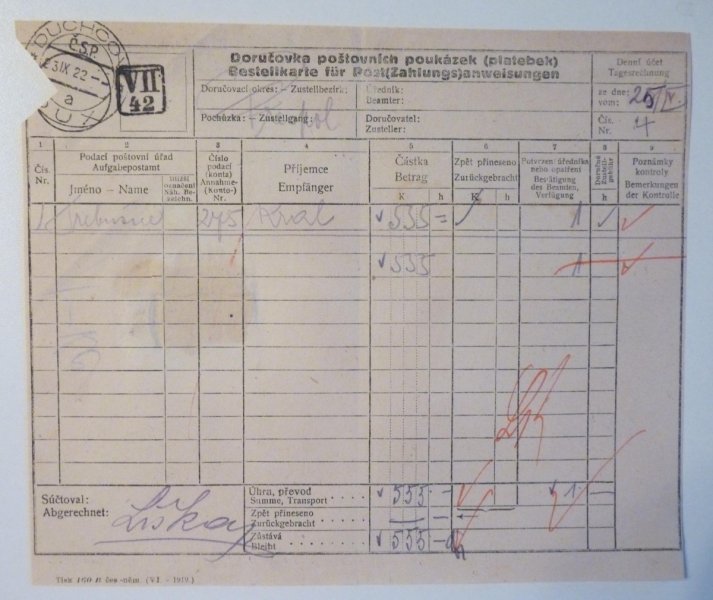 DUCHCOV
Č.S.P.
23 IX 22
a
DUX
VII
42
Doručovka poštovních poukázek (platebek)
Bestellkarte für Post(Zahlungs)anweisungen
Denní účet
Tagesrechnung
Doručovací okres: – Zustellbezirk:
Úředník:
Beamter:
ze dne:
vom:
Pochůzka: – Zustellgang:
Doručovatel:
Zusteller:
Čís.
Nr.
4
1 2 3 4 5 6 7 8 9
Čís.
Nr.
Podací poštovní úřad
Aufgabepostamt
Jméno – Name
Bližší
označení
Näh. Be-
zeichn.
Číslo
podací
(konta)
Annahme-
(Konto-)
Nr.
Příjemce
Empfänger
Částka
Betrag
K h
Zpět přineseno
Zurückgebracht
K h
Potvrzení úředníka
nebo opatření
Bestätigung
des Beamten,
Verfügung
h
Poznámky
kontroly
Bemerkungen
der Kontrolle
1 275 Král 535 = 1
535 1
Súčtoval:
Abgerechnet:
Liška
Úhrn, převod
Summe, Transport
535 – 1 –
Zpět přineseno
Zurückgebracht
Zůstává
Bleibt
535
Tisk 160 B čes.-něm. (VI. - 1919.)